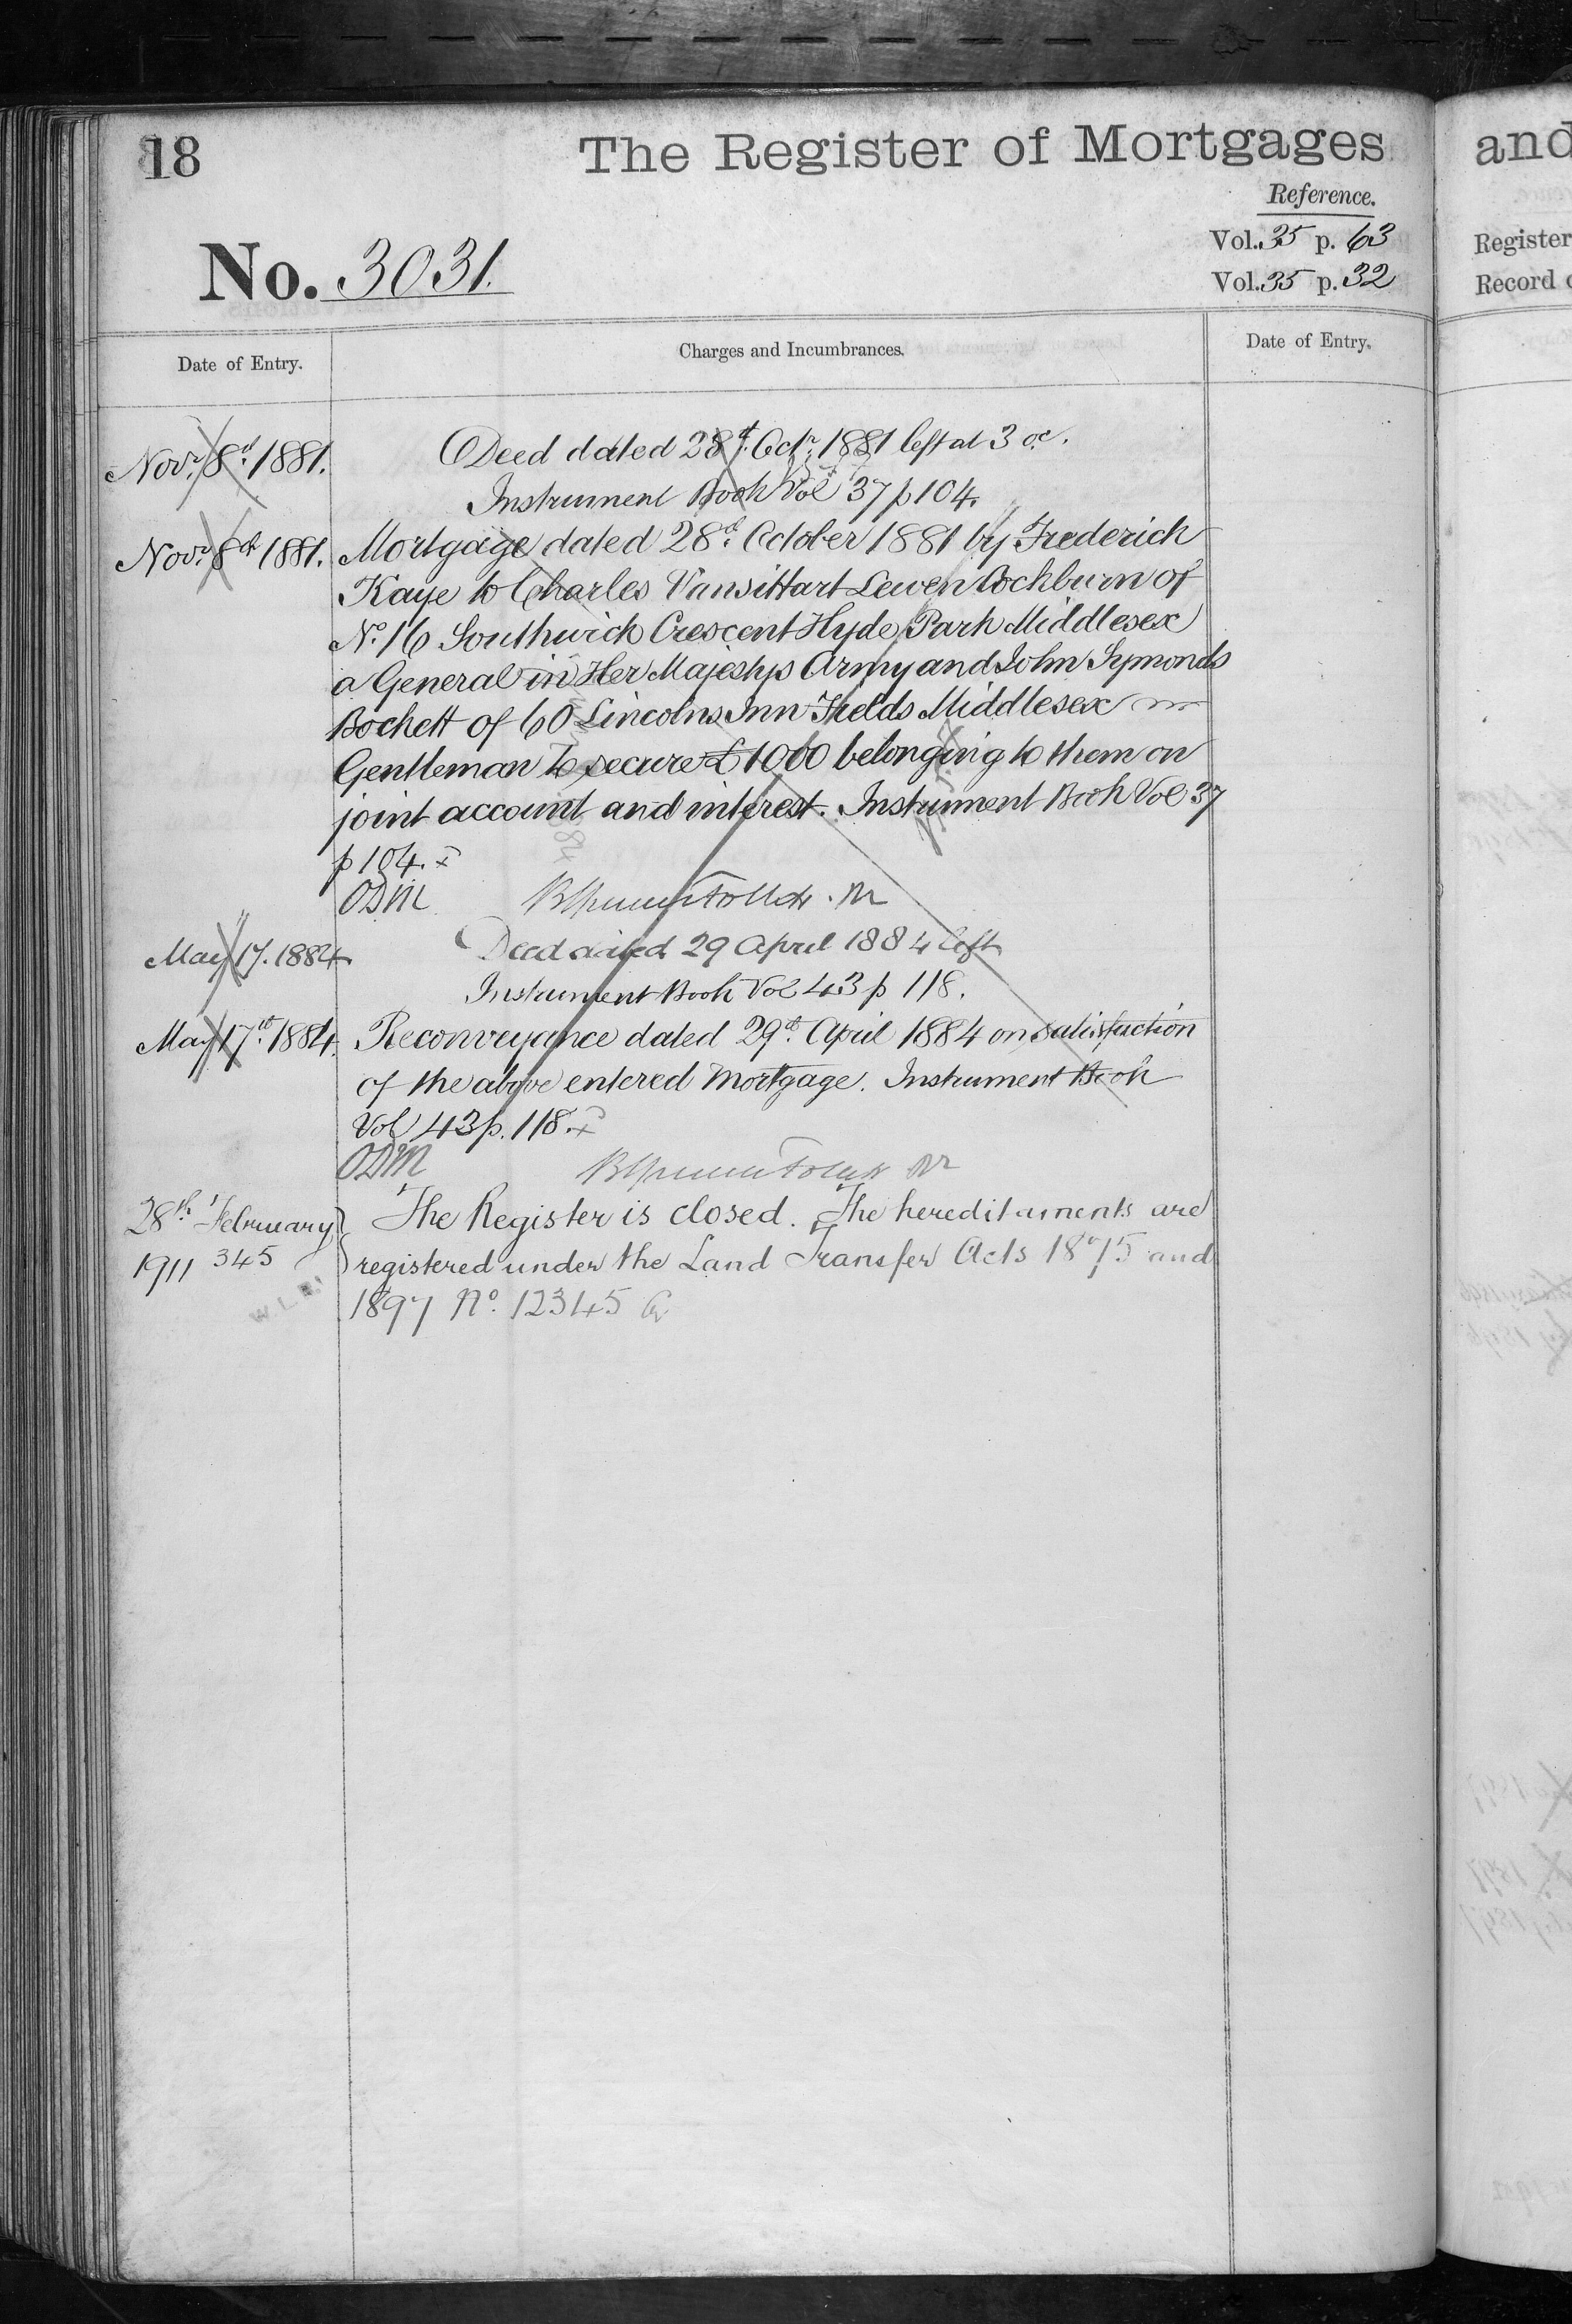 18
The Register of Mortgages
and
Reference.
Vol. 35 p. 63
Register
Vol. 35 p. 32
Record
No. 3031.
Date of Entry.
Charges and Incumbrances.
Date of Entry.
Novr. 8th 1881.
Deed dated 28th Octr. 1881 left at 3 oc.
Instrument Book Vol 37 p 104.
Novr. 8th 1881.
Mortgage dated 28th October 1881 by Frederick
Kaye to Charles Vansittart Lewen Cockburn of
No. 16 Southwick Crescent Hyde Park Middlesex
a General in Her Majestys Army and John Symonds
Bockett of 60 Lincolns Inn Fields Middlesex
Gentleman to secure £1000 belonging to them on
joint account and interest. Instrument Book Vol 37
p 104. x
ODM
May 17. 1884
Deed dated 29 April 1884 left
Instrument Book Vol 43 p 118.
May 17th 1884.
Reconveyance dated 29th April 1884 on satisfaction
of the above entered Mortgage. Instrument Book
Vol 43 p. 118. x
ODM
28th February
1911 345
The Register is closed. The hereditaments are
registered under the Land Transfer Acts 1875 and
1897 No. 12345